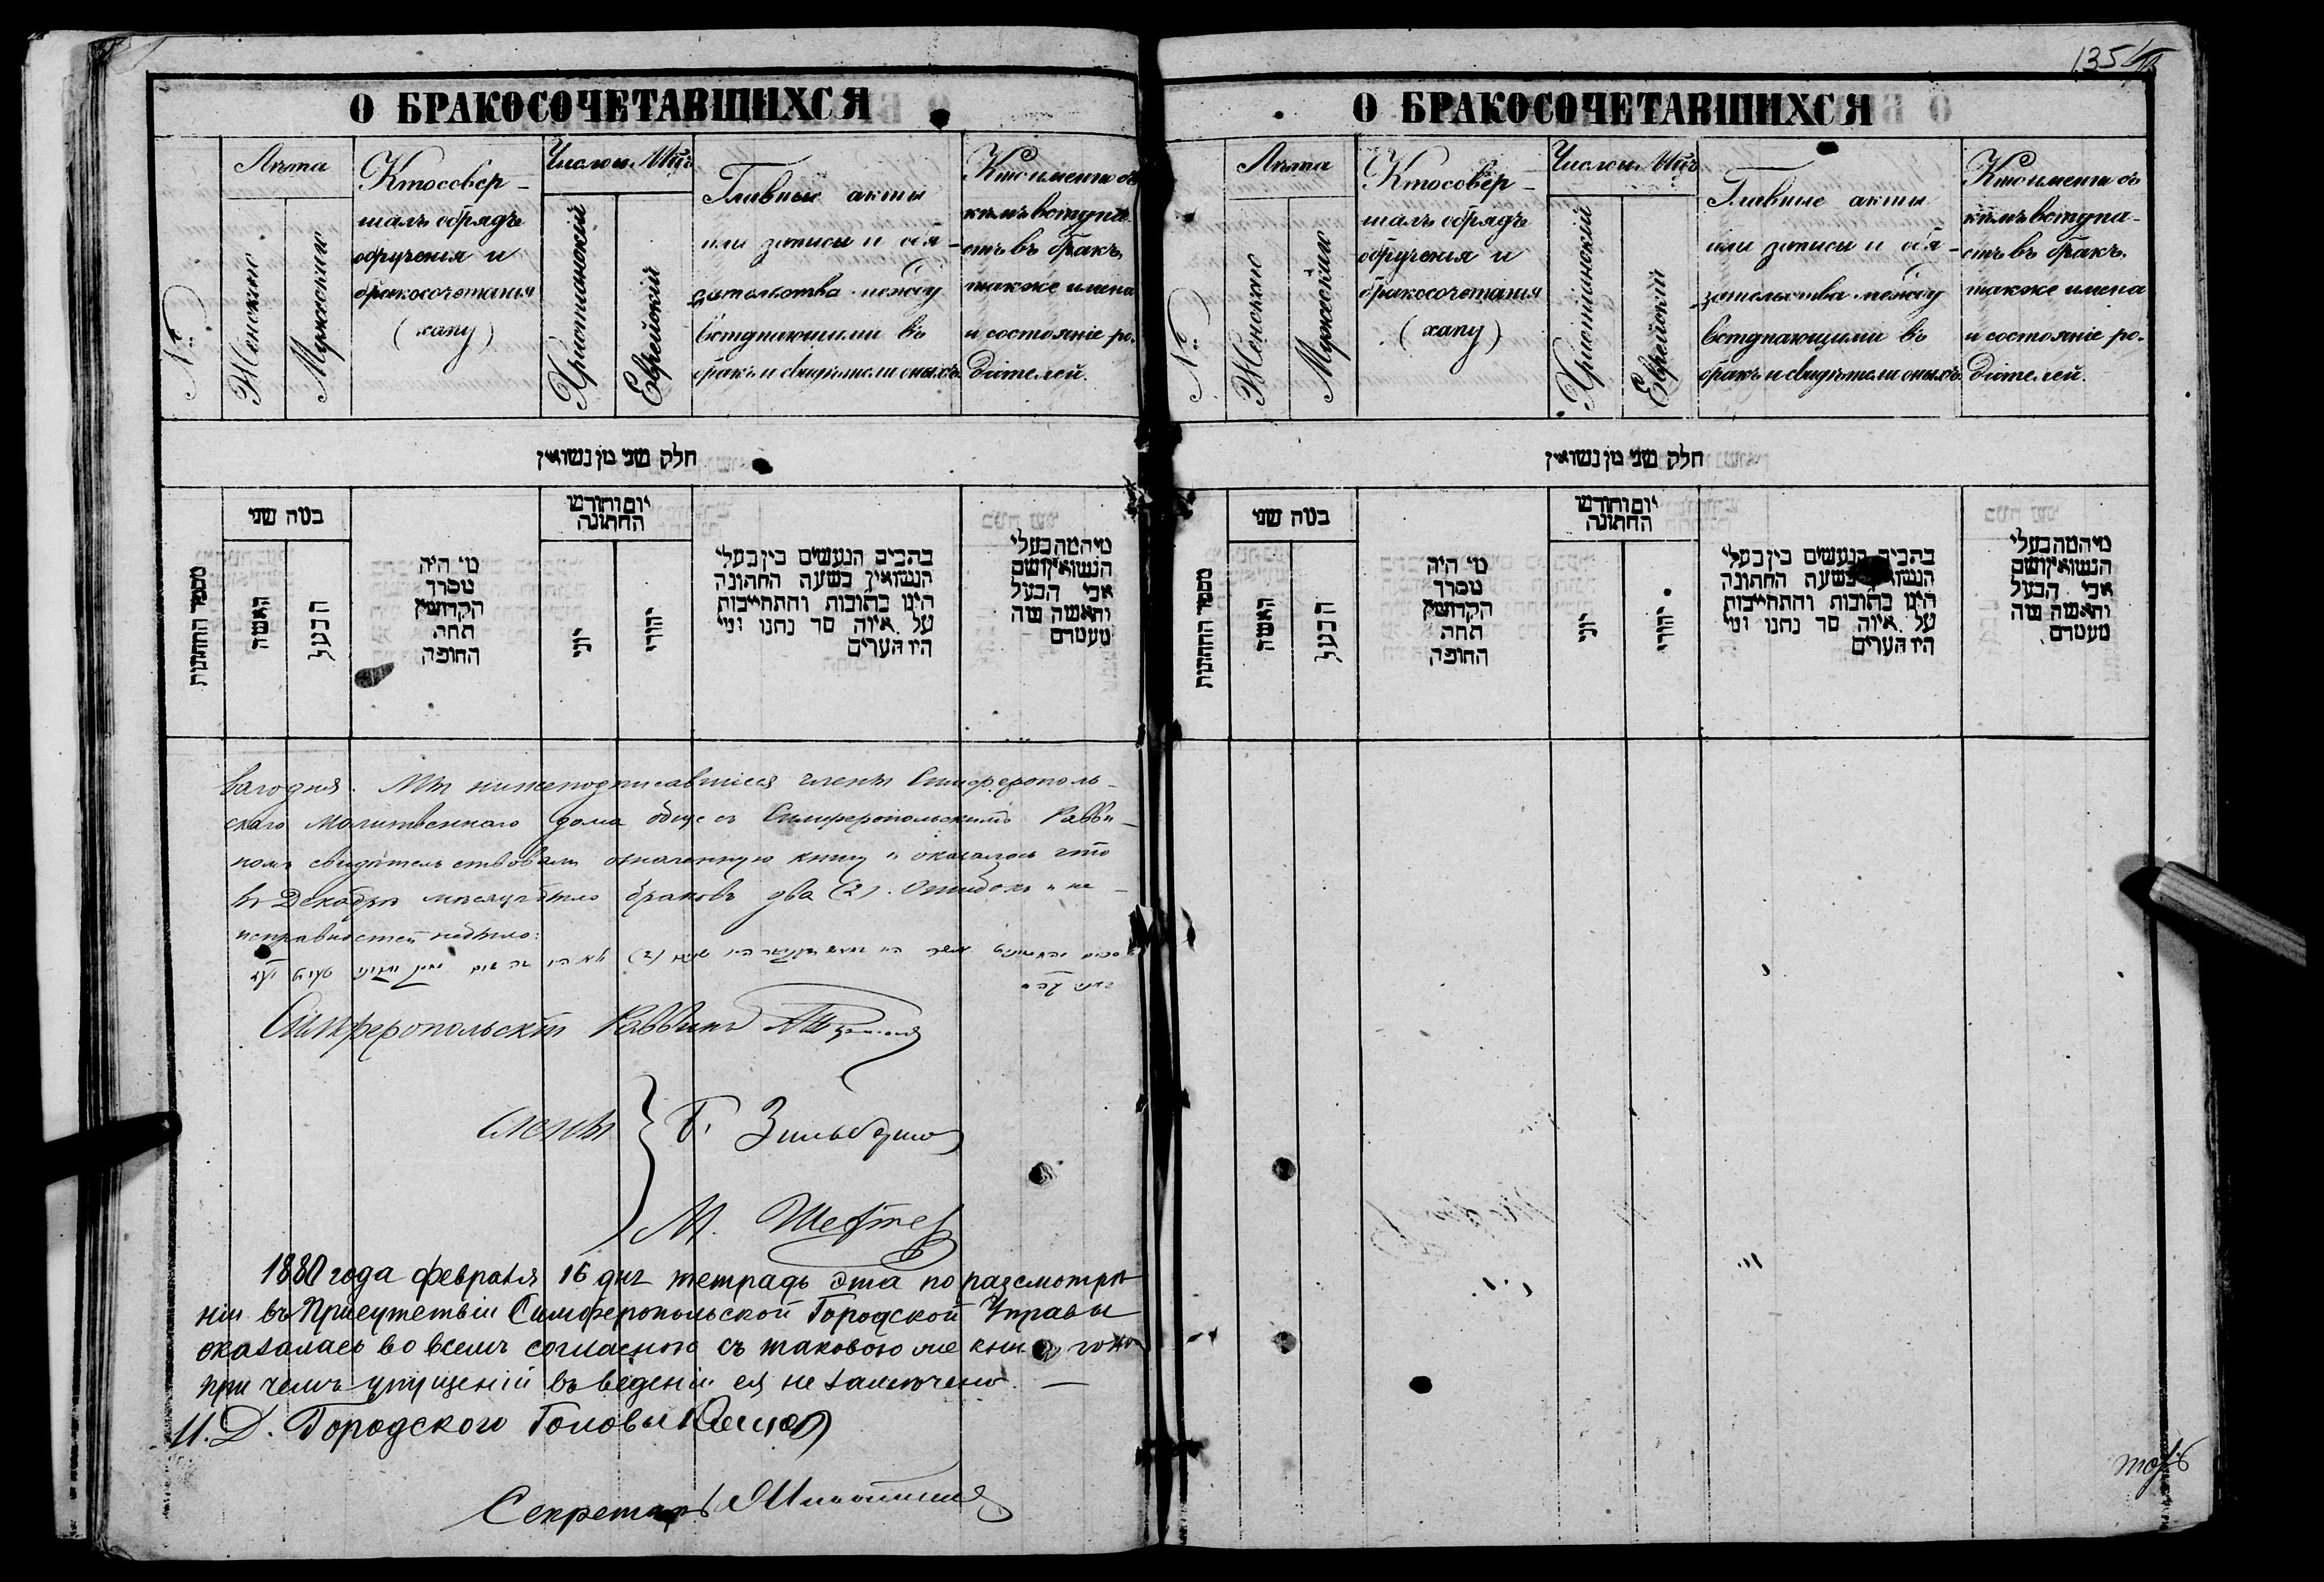 135
О БРАКОСОЧЕТАВШИХСЯ
№
Лѣта
Женскаго
Мужскаго
Кто совер-
шалъ обрядъ
обрученія и
бракосочетанія
(хапу)
Число и М-цъ
Христіанскій
Еврейскій
Главные акты
или записи и обя-
зательства между
вступающими въ
бракъ и свидѣтели оныхъ.
Кто именно съ
кѣмъ вступа-
етъ въ бракъ.
также имена
и состояніе ро-
дителей.
חלק שני מן נשואין
מספר החתונות
במה שני
האשה
הבעל
מי היה
מסדר
הקדושין
תחת
החופה
יום וחודש
החתונה
יוני
יהודי
כתבים הנעשים בין בעלי
הנשואין בשעת החתונה
היינו כתובות והתחייבות
על איזה סך נתנו ומי
היו העדים
מי המה בעלי
הנשואין ושם
אבי הבעל
והאשה ומה
מעמדם
Мы нижеподписавшіеся члены Симферополь-
скаго молитвеннаго дома обще съ Симферопольскимъ Равви-
номъ свидѣтельствовали означенную книгу и оказалось что
въ Декабрѣ мѣсяцѣ было браковъ два (2). Ошибокъ и не-
исправностей не было:
Симферопольскій Раввинъ
Члены
М. Шефтель
1880 года февраля 16 дня тетрадь эта по разсмотрѣ-
ніи въ Присутствіи Симферопольской Городской Управы
оказалась во всемъ согласною съ таковою же книгою
при чемъ упущеній въ веденіи ея не замѣчено. —
И. Д. Городского Головы
Секретарь
О БРАКОСОЧЕТАВШИХСЯ
№
Лѣта
Женскаго
Мужскаго
Кто совер-
шалъ обрядъ
обрученія и
бракосочетанія
(хапу)
Число и М-цъ
Христіанскій
Еврейскій
Главные акты
или записи и обя-
зательства между
вступающими въ
бракъ и свидѣтели оныхъ.
Кто именно съ
кѣмъ вступа-
етъ въ бракъ.
также имена
и состояніе ро-
дителей.
חלק שני מן נשואין
מספר החתונות
במה שני
האשה
הבעל
מי היה
מסדר
הקדושין
תחת
החופה
יום וחודש
החתונה
יוני
יהודי
כתבים הנעשים בין בעלי
הנשואין בשעת החתונה
היינו כתובות והתחייבות
על איזה סך נתנו ומי
היו העדים
מי המה בעלי
הנשואין ושם
אבי הבעל
והאשה ומה
מעמדם